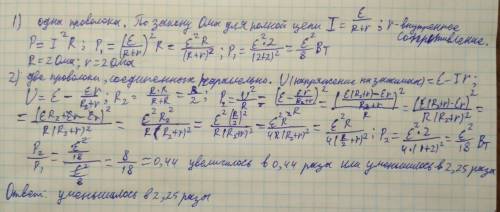 1) одна проволока. По закону Ома для полной цепи I = E/(R+r); r - внутреннее сопротивление.
P = I²R; P₁ = (E/(R+r))²R = E²R/(R+r)²; P₁ = E²·2/(2+2)² = E²/8 Вт
R = 2 Ома; r = 2 Ома
2) две проволоки, соединенных параллельно. U (напряжение на зажимах) = E - Ir;
U = E - Er/(R₂+r); R₂ = R·R/(R+R) = R/2; P₂ = U²/R = (E - Er/(R₂+r))²/R = ((E(R₂+r) - Er)/(R₂+r))²/R = (E(R₂+r) - Er)²
= (ER₂ + Er - Er)²/(R(R₂+r)²) = E²R₂²/(R(R₂+r)²) = E²(R/2)²/(R(R₂+r)²) = E²R²/(4R(R₂+r)²) = E²R/(4(R/2+r)²); P₂ = E²·2/(4·(1+2)²) = E²/18 Вт
P₂/P₁ = (E²/18)/(E²/8) = 8/18 = 0,44 увеличилось в 0,44 разы или уменьшилось в 2,25 разы
Ответ: уменьшилось в 2,25 разы